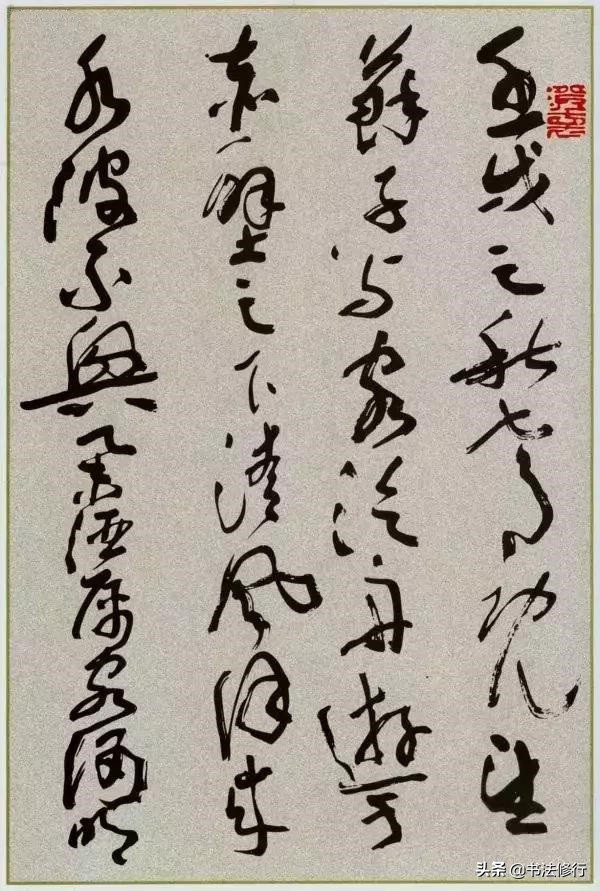 壬戌之秋七月既望
蘇子与客泛舟遊于
赤壁之下清風徐来
水波不興舉酒属客誦明
头条 @书法修行